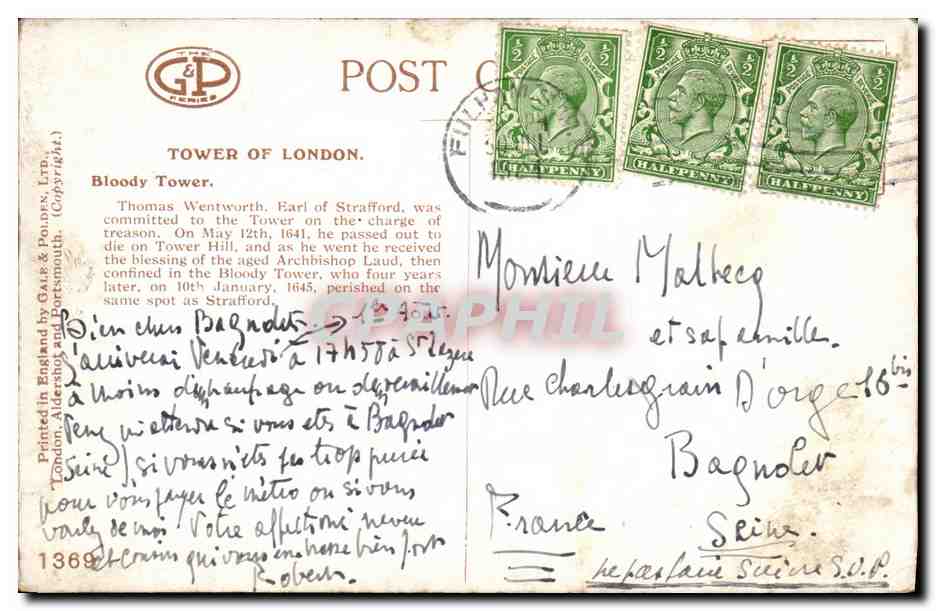 THE
G&P
SERIES
POST C
TOWER OF LONDON.
Bloody Tower.
Thomas Wentworth, Earl of Strafford, was
committed to the Tower on the charge of
treason. On May 12th, 1641, he passed out to
die on Tower Hill, and as he went he received
the blessing of the aged Archbishop Laud, then
confined in the Bloody Tower, who four years
later, on 10th January, 1645, perished on the
same spot as Strafford.
Printed in England by GALE & POLDEN, LTD.,
London, Aldershot and Portsmouth. (Copyright.)
1369
Bien chers Bagnolet 1er Août.
J'arriverai Vendredi à 17h58 à St Lazare
à moins de naufrage ou de
Venez m'attendre si vous êtes à Bagnolet
Seine) si vous n'êtes pas trop purée
pour vous payer le métro ou si vous
voulez de moi. Votre affectioné neveu
et cousin qui vous embrasse bien fort
Robert.
½ ½
POSTAGE REVENUE
HALFPENNY
½ ½
POSTAGE REVENUE
HALFPENNY
½ ½
POSTAGE REVENUE
HALFPENNY
FULHAM
Monsieur Malbecq
et sa famille.
Rue Charles Grain D'orge 16 bis
Bagnolet
Seine.
France
Ne pas faire suivre S.V.P.
CPAPHIL